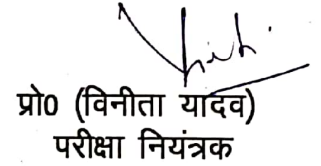 प्रो0 (विनीता यादव)
परीक्षा नियंत्रक